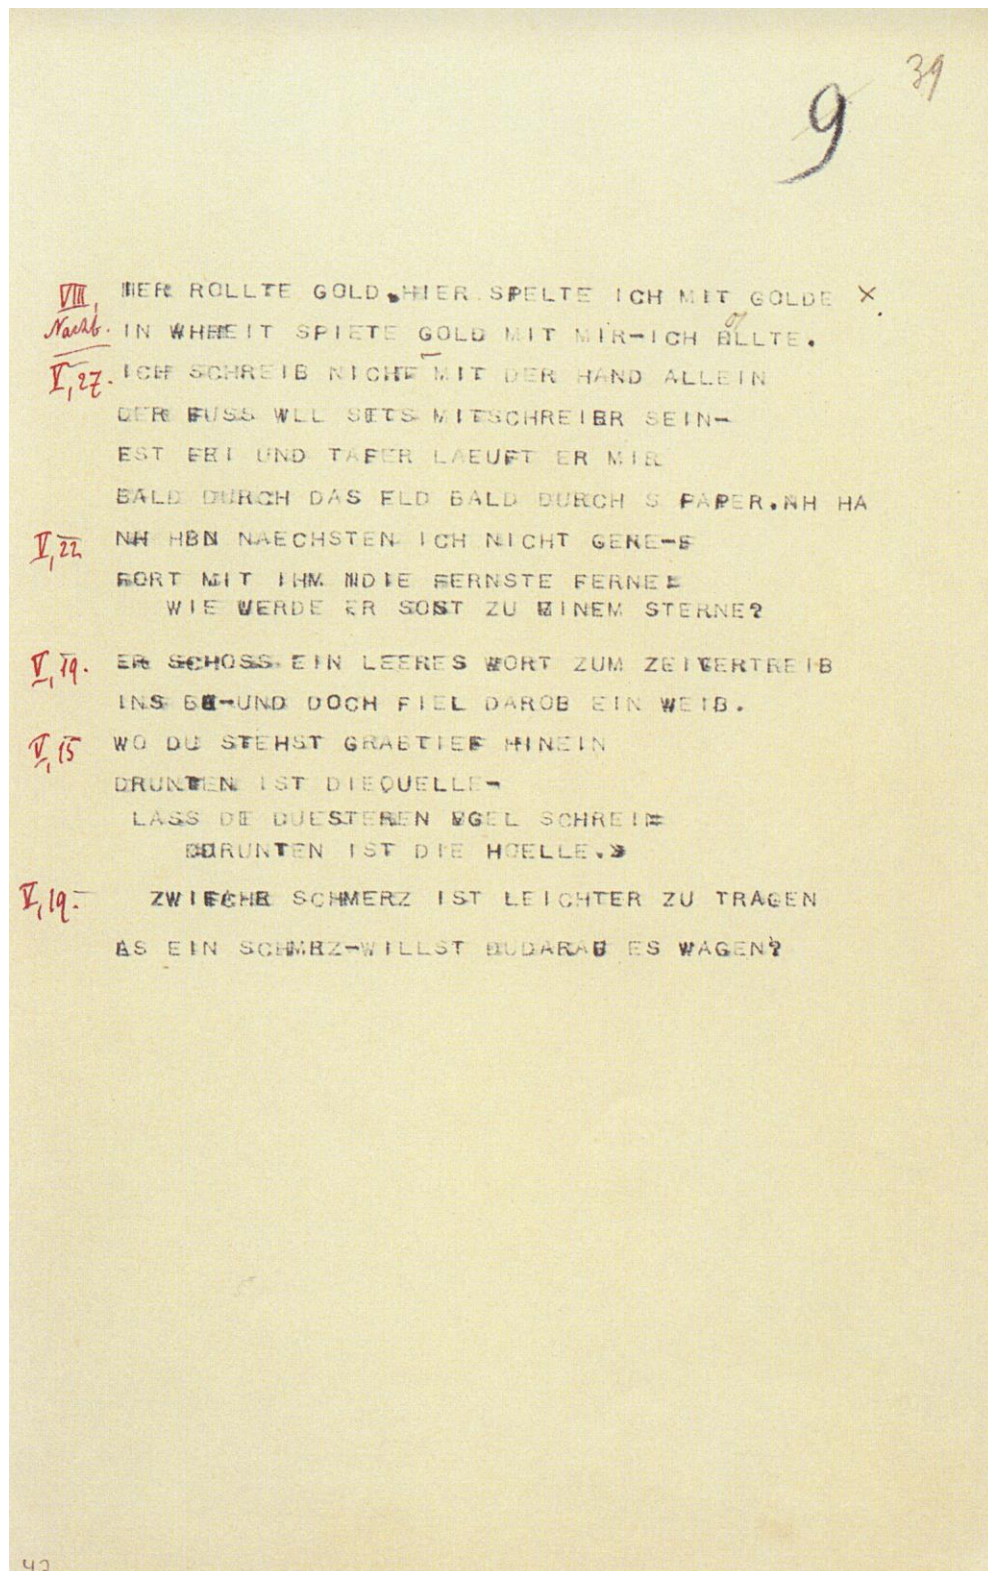 39
9
VIII, HIER ROLLTE GOLD.HIER SPELTE ICH MIT GOLDE ×
Nachb. IN WHHEIT SPIETE GOLD MIT MIR-ICH OLLTE.
V,27. ICH SCHREIB NICHT MIT DER HAND ALLEIN
DER FUSS WLL SETS MITSCHREIBR SEIN-
EST FRI UND TAFER LAEUFT ER MIR
BALD DURCH DAS FLD BALD DURCH S PAPER.NH HA
V,22 NH HBN NAECHSTEN ICH NICHT GERE-E
FORT MIT IHM INDIE FERNSTE FERNE
WIE WERDE ER SOST ZU EINEM STERNE?
V,19. ER SCHOSS EIN LEERES WORT ZUM ZEITVERTREIB
INS -UND DOCH FIEL DAROB EIN WEIB.
V,15 WO DU STEHST GRABTIEF HINEIN
DRUNTEN IST DIEQUELLE-
LASS DIE DUESTEREN SCHREIN
DRUNTEN IST DIE HOELLE.
V,19.- SCHMERZ IST LEICHTER ZU TRAGEN
AS EIN SCHMRZ-WILLST DUDARAU ES WAGEN?